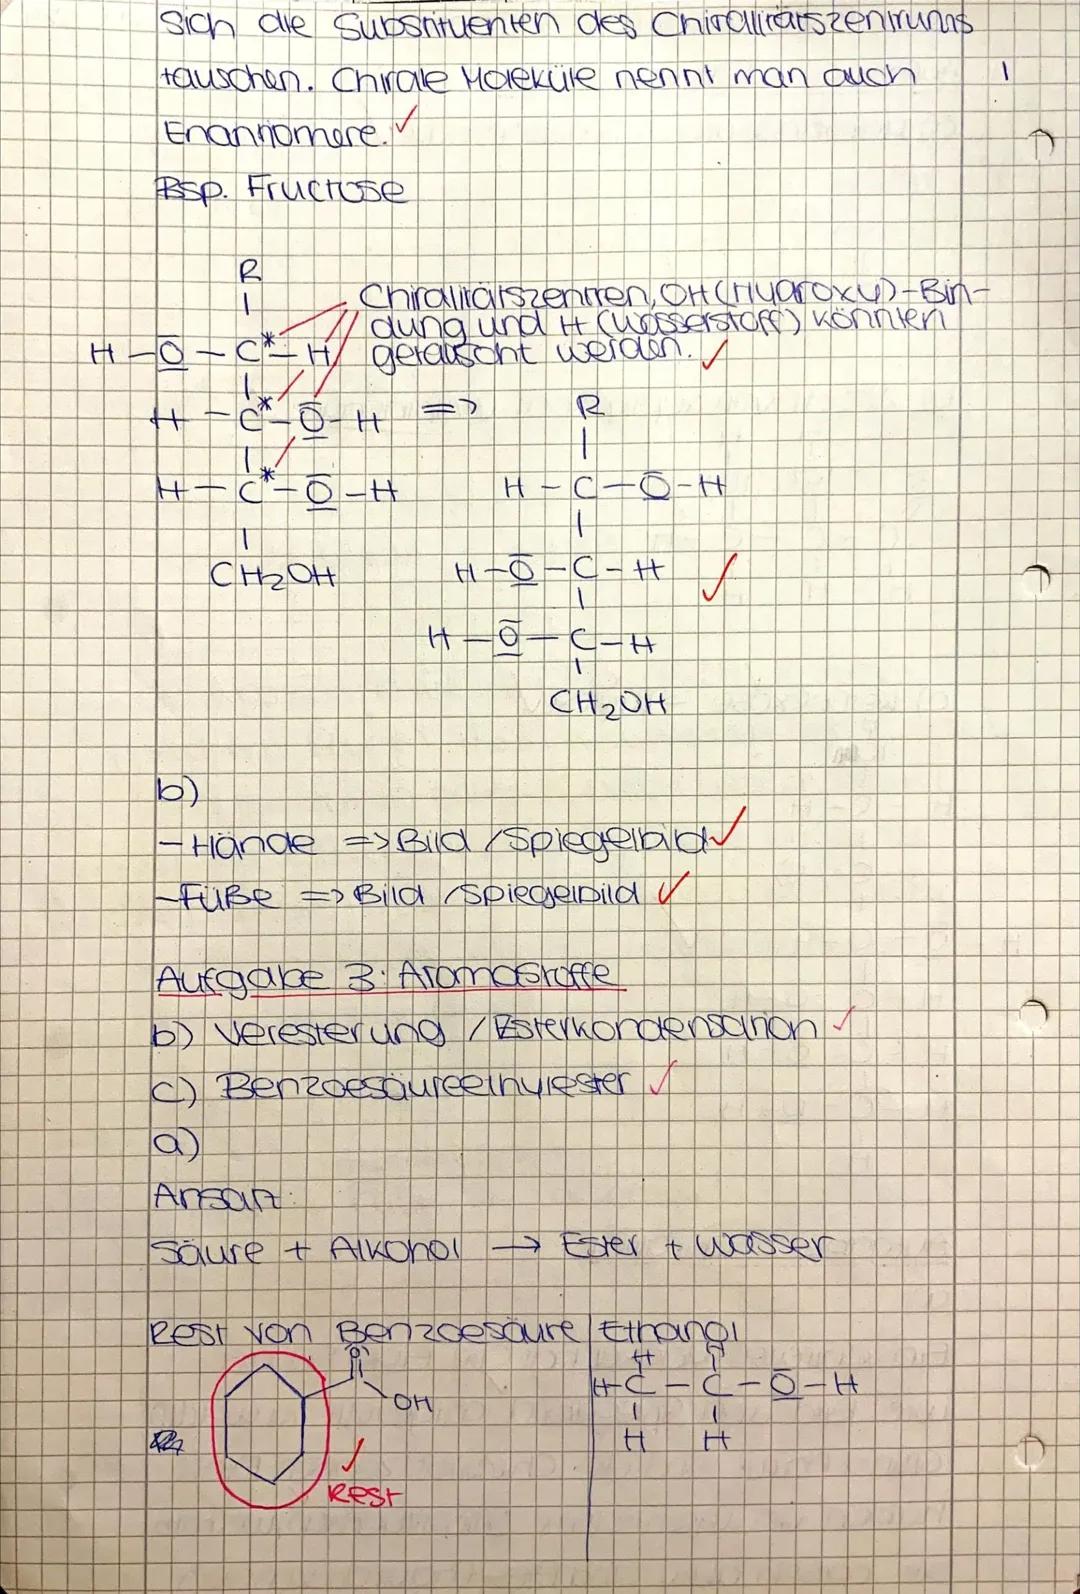 sich die Substituenten des Chiralitätszentrums
tauschen. Chirale Moleküle nennt man auch
Enantiomere. ✓
Bsp. Fructose
R
Chiralitätszentren, OH (Hydroxy)-Bin-
dung und H (Wasserstoff) könnten
H-O-C*-H getauscht werden. ✓
H-C*-O-H => R
H-C*-O-H H-C-O-H
CH2OH H-O-C-H ✓
H-O-C-H
CH2OH
b)
- Hände => Bild / Spiegelbild ✓
- Füße => Bild / Spiegelbild ✓
Aufgabe 3: Aromastoffe
b) Veresterung / Esterkondensation ✓
c) Benzoesäureethylester ✓
a)
Ansatz:
Säure + Alkohol → Ester + Wasser
Rest von Benzoesäure | Ethanol
O H H
OH H-C-C-O-H
H H
✓
Rest